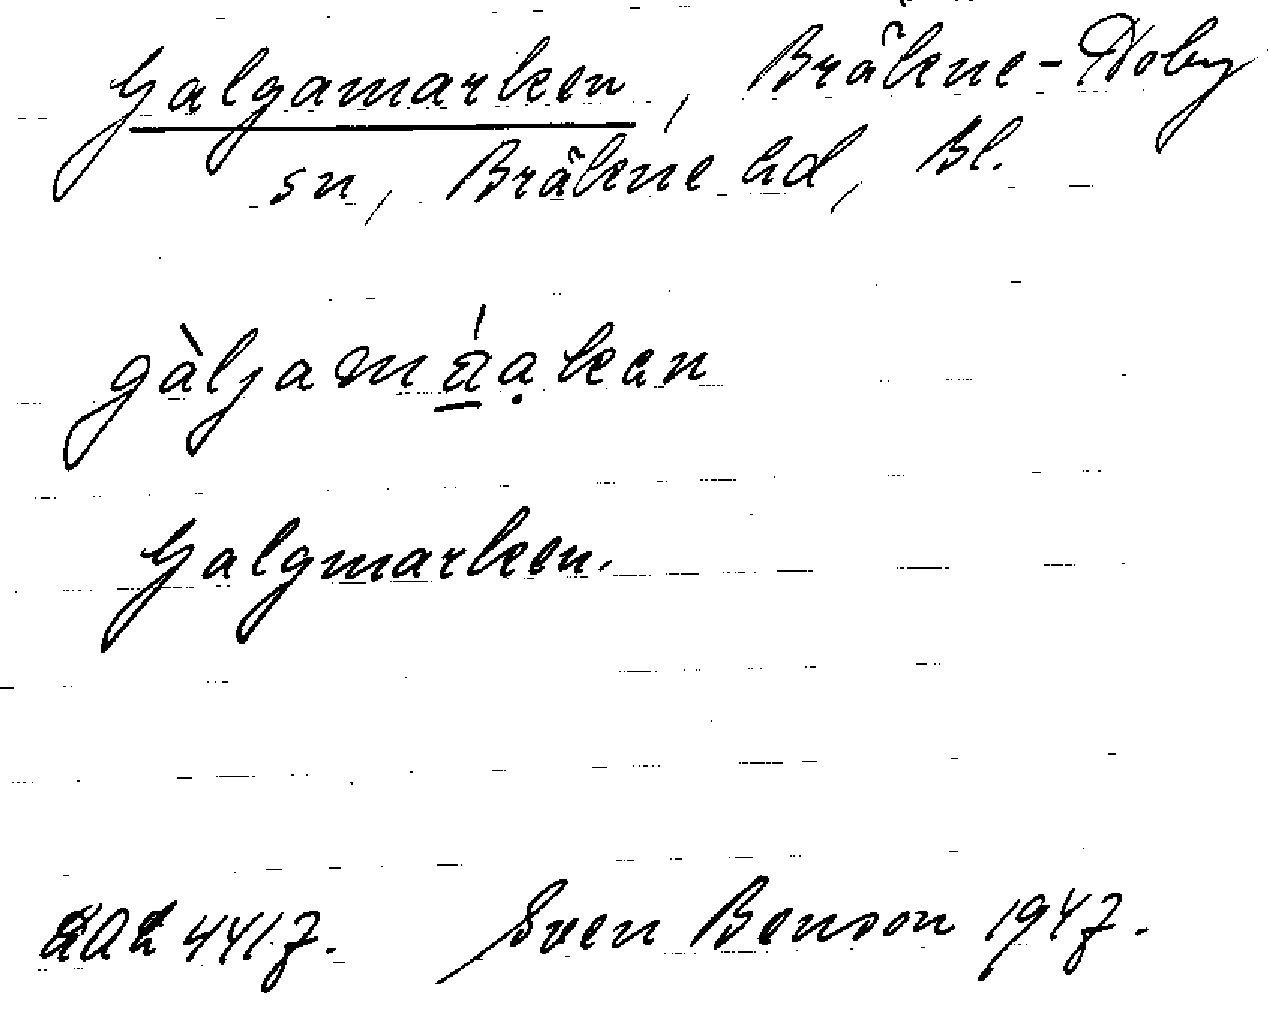 Galgamarken, Bräkne-Hoby
sn, Bräkne hd, Bl.
gàljamáa̤ken
Galgmarken.
LAL 4417. Sven Benson 1947.